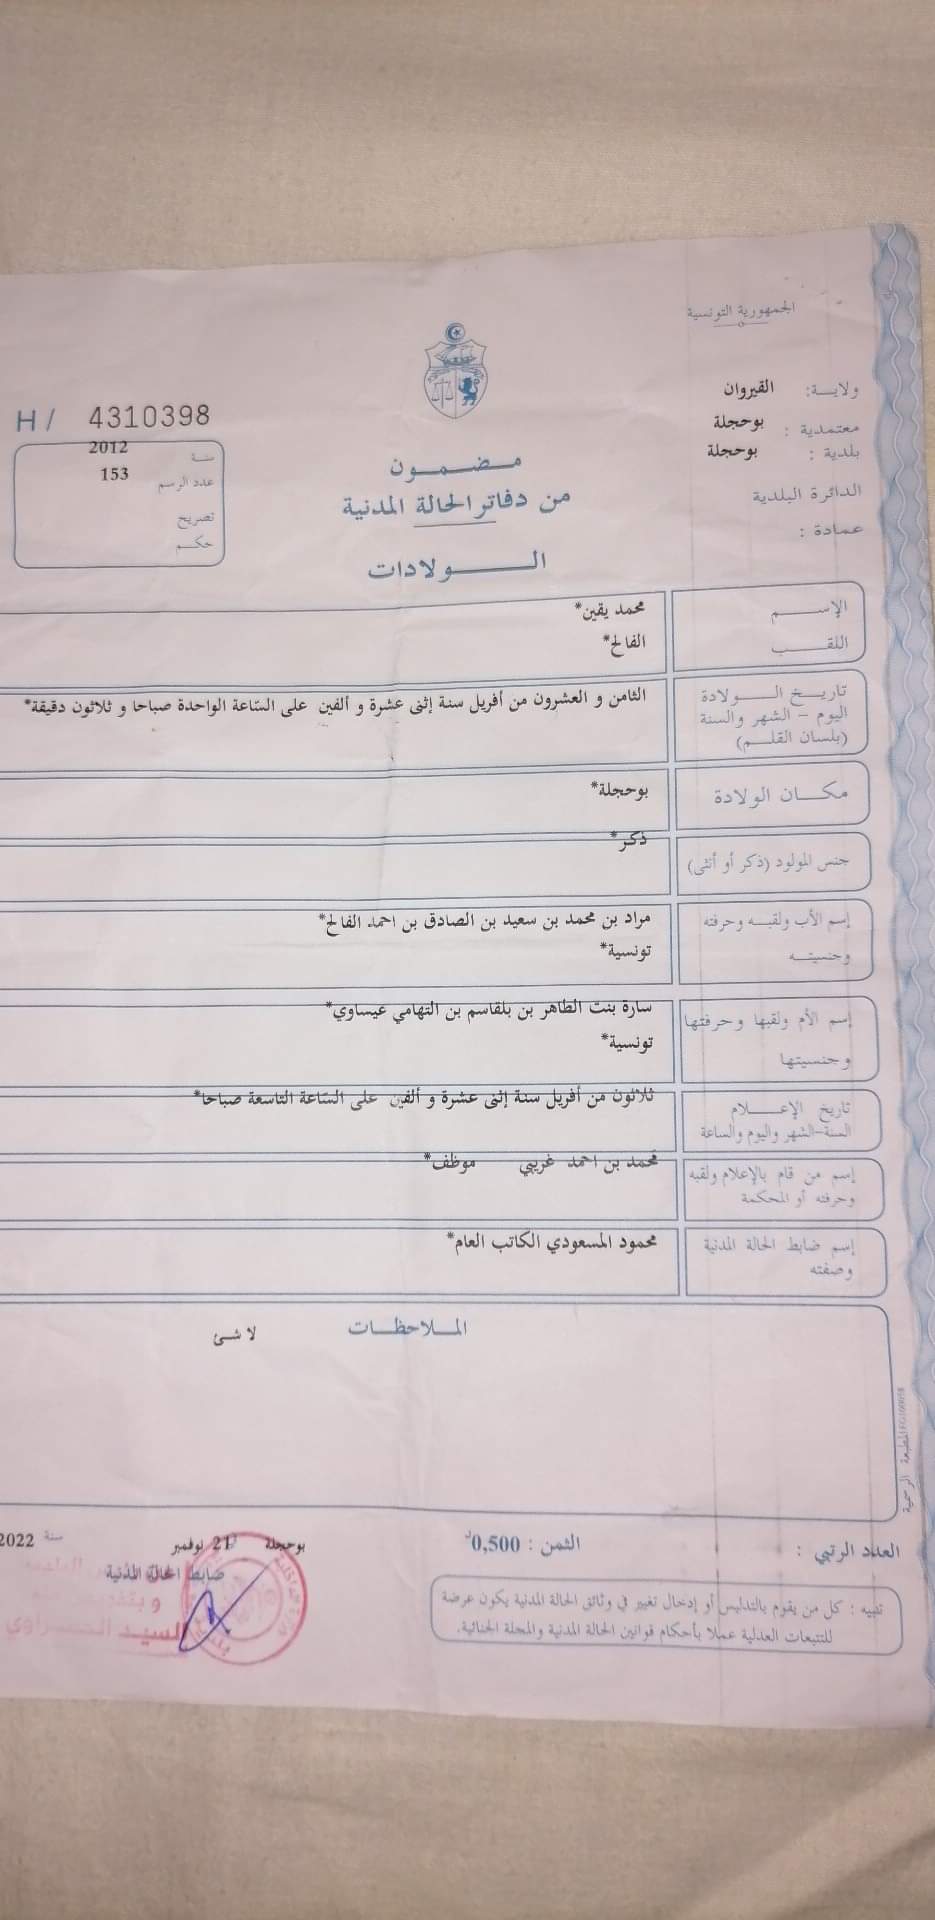 الجمهورية التونسية
ولايــة: القيروان
معتمدية : بوحجلة
بلدية : بوحجلة
الدائرة البلدية
عمادة :
H / 4310398
سنة 2012
عدد الرسم 153
تصريح
حكم
مضمون
من دفاتر الحالة المدنية
الــولادات
الإســم محمد يقين*
اللقــب الفالح*
تاريــخ الــولادة
اليوم – الشهر والسنة
(بلسان القلــم)
الثامن و العشرون من أفريل سنة إثنى عشرة و ألفين على السّاعة الواحدة صباحا و ثلاثون دقيقة*
مكــان الولادة بوحجلة*
جنس المولود (ذكر أو أنثى) ذكر*
إسم الأب ولقبــه وحرفته مراد بن محمد بن سعيد بن الصادق بن احمد الفالح*
وجنسيتــه تونسية*
إسم الأم ولقبها وحرفتها سارة بنت الطاهر بن بلقاسم بن التهامي عيساوي*
وجنسيتها تونسية*
تاريخ الإعــلام ثلاثون من أفريل سنة إثنى عشرة و ألفين على السّاعة التاسعة صباحا*
السنة-الشهر واليوم والساعة
إسم من قام بالإعلام ولقبه محمد بن احمد غريبي موظف*
وحرفته أو المحكمة
إسم ضابط الحالة المدنية محمود المسعودي الكاتب العام*
وصفته
المــلاحظــات لا شئ
المطبعة الرسمية
العدد الرتبي :
الثمن : 0,500د
بوحجلة 21 نوفمبر سنة 2022
ضابط الحالة المدنية
تنبيه : كل من يقوم بالتدليس أو إدخال تغيير في وثائق الحالة المدنية يكون عرضة
للتتبعات العدلية عملا بأحكام قوانين الحالة المدنية والمجلة الجنائية.